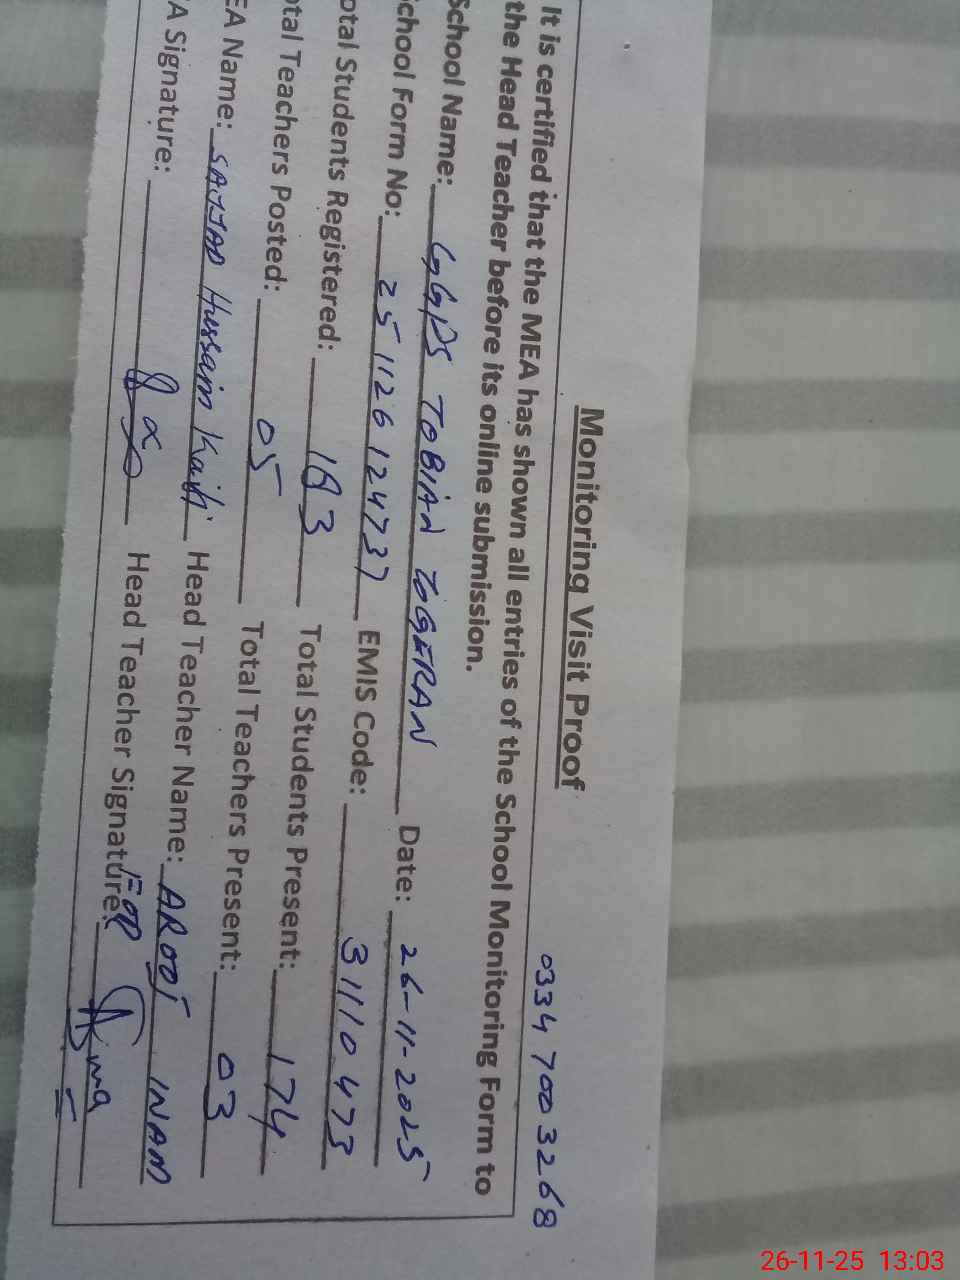 Monitoring Visit Proof
0334 700 3268
It is certified that the MEA has shown all entries of the School Monitoring Form to
the Head Teacher before its online submission.
School Name: GGPS TOBIAN TOGERAN Date: 26-11-2025
School Form No: 251126124737 EMIS Code: 31110473
otal Students Registered: 183 Total Students Present: 174
otal Teachers Posted: 05 Total Teachers Present: 03
EA Name: SAJJAD Hussain Head Teacher Name: AROOJ INAM
A Signature: Head Teacher Signature: FOR Asma
26-11-25 13:03